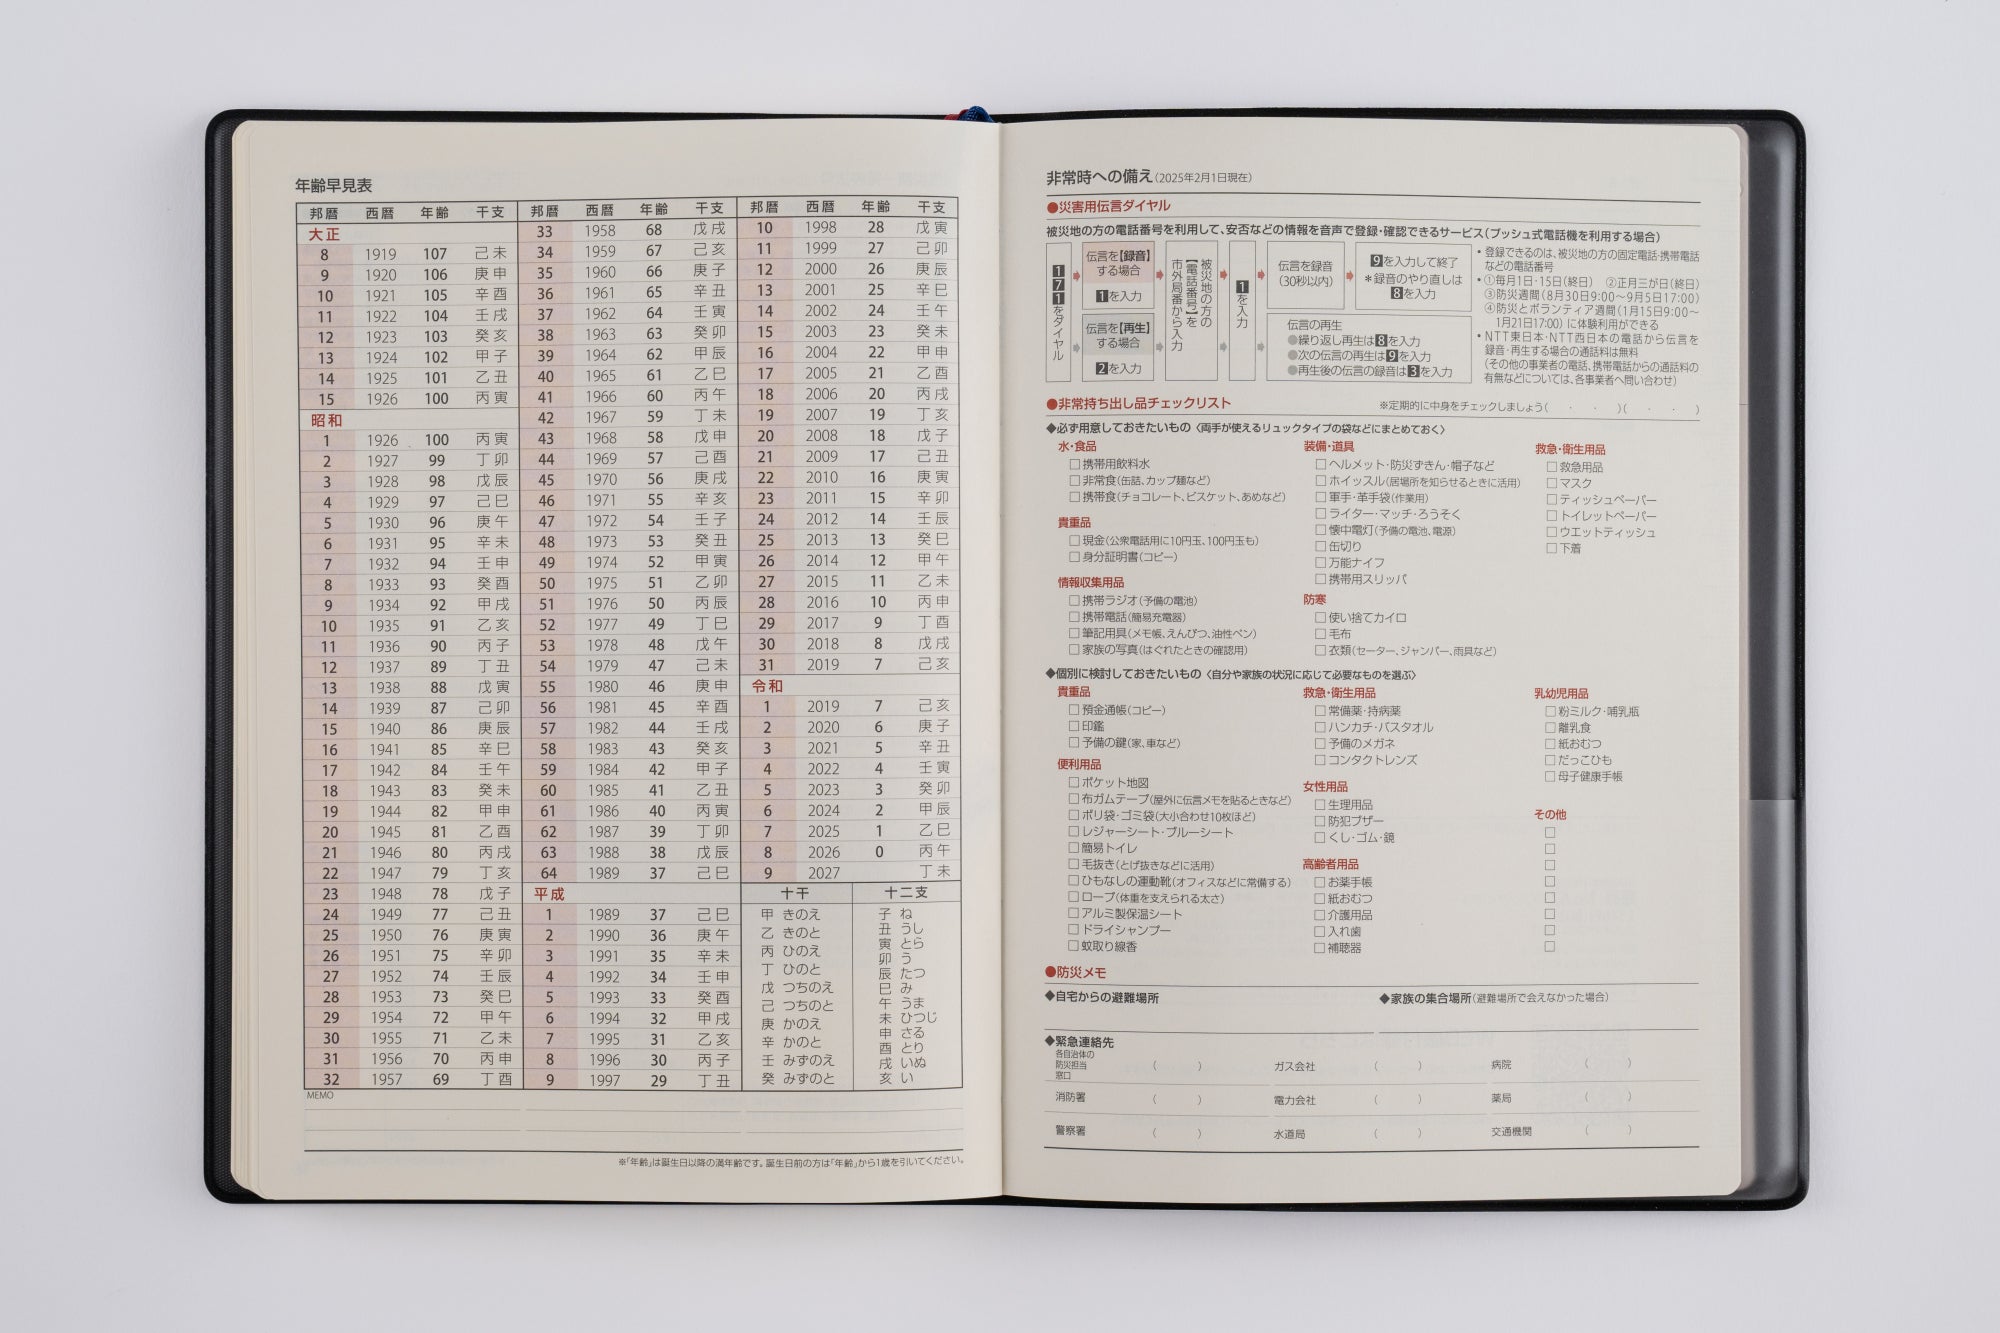 年齢早見表
邦暦 西暦 年齢 干支
大正
8 1919 107 己未
9 1920 106 庚申
10 1921 105 辛酉
11 1922 104 壬戌
12 1923 103 癸亥
13 1924 102 甲子
14 1925 101 乙丑
15 1926 100 丙寅
昭和
1 1926 100 丙寅
2 1927 99 丁卯
3 1928 98 戊辰
4 1929 97 己巳
5 1930 96 庚午
6 1931 95 辛未
7 1932 94 壬申
8 1933 93 癸酉
9 1934 92 甲戌
10 1935 91 乙亥
11 1936 90 丙子
12 1937 89 丁丑
13 1938 88 戊寅
14 1939 87 己卯
15 1940 86 庚辰
16 1941 85 辛巳
17 1942 84 壬午
18 1943 83 癸未
19 1944 82 甲申
20 1945 81 乙酉
21 1946 80 丙戌
22 1947 79 丁亥
23 1948 78 戊子
24 1949 77 己丑
25 1950 76 庚寅
26 1951 75 辛卯
27 1952 74 壬辰
28 1953 73 癸巳
29 1954 72 甲午
30 1955 71 乙未
31 1956 70 丙申
32 1957 69 丁酉
邦暦 西暦 年齢 干支
33 1958 68 戊戌
34 1959 67 己亥
35 1960 66 庚子
36 1961 65 辛丑
37 1962 64 壬寅
38 1963 63 癸卯
39 1964 62 甲辰
40 1965 61 乙巳
41 1966 60 丙午
42 1967 59 丁未
43 1968 58 戊申
44 1969 57 己酉
45 1970 56 庚戌
46 1971 55 辛亥
47 1972 54 壬子
48 1973 53 癸丑
49 1974 52 甲寅
50 1975 51 乙卯
51 1976 50 丙辰
52 1977 49 丁巳
53 1978 48 戊午
54 1979 47 己未
55 1980 46 庚申
56 1981 45 辛酉
57 1982 44 壬戌
58 1983 43 癸亥
59 1984 42 甲子
60 1985 41 乙丑
61 1986 40 丙寅
62 1987 39 丁卯
63 1988 38 戊辰
64 1989 37 己巳
平成
1 1989 37 己巳
2 1990 36 庚午
3 1991 35 辛未
4 1992 34 壬申
5 1993 33 癸酉
6 1994 32 甲戌
7 1995 31 乙亥
8 1996 30 丙子
9 1997 29 丁丑
邦暦 西暦 年齢 干支
10 1998 28 戊寅
11 1999 27 己卯
12 2000 26 庚辰
13 2001 25 辛巳
14 2002 24 壬午
15 2003 23 癸未
16 2004 22 甲申
17 2005 21 乙酉
18 2006 20 丙戌
19 2007 19 丁亥
20 2008 18 戊子
21 2009 17 己丑
22 2010 16 庚寅
23 2011 15 辛卯
24 2012 14 壬辰
25 2013 13 癸巳
26 2014 12 甲午
27 2015 11 乙未
28 2016 10 丙申
29 2017 9 丁酉
30 2018 8 戊戌
31 2019 7 己亥
令和
1 2019 7 己亥
2 2020 6 庚子
3 2021 5 辛丑
4 2022 4 壬寅
5 2023 3 癸卯
6 2024 2 甲辰
7 2025 1 乙巳
8 2026 0 丙午
9 2027 丁未
十干
甲 きのえ
乙 きのと
丙 ひのえ
丁 ひのと
戊 つちのえ
己 つちのと
庚 かのえ
辛 かのと
壬 みずのえ
癸 みずのと
十二支
子 ね
丑 うし
寅 とら
卯 う
辰 たつ
巳 み
午 うま
未 ひつじ
申 さる
酉 とり
戌 いぬ
亥 い
MEMO
※「年齢」は誕生日以降の満年齢です。誕生日前の方は「年齢」から1歳を引いてください。
非常時への備え(2025年2月1日現在)
●災害用伝言ダイヤル
被災地の方の電話番号を利用して、安否などの情報を音声で登録・確認できるサービス(プッシュ式電話機を利用する場合)
171をダイヤル
伝言を【録音】
する場合
1を入力
伝言を【再生】
する場合
2を入力
被災地の方の
【電話番号】を
市外局番から入力
1を入力
伝言を録音
(30秒以内)
9を入力して終了
＊録音のやり直しは
8を入力
伝言の再生
●繰り返し再生は8を入力
●次の伝言の再生は9を入力
●再生後の伝言の録音は3を入力
・登録できるのは、被災地の方の固定電話・携帯電話
などの電話番号
・①毎月1日・15日(終日) ②正月三が日(終日)
③防災週間(8月30日9:00〜9月5日17:00)
④防災とボランティア週間(1月15日9:00〜
1月21日17:00)に体験利用ができる
・NTT東日本・NTT西日本の電話から伝言を
録音・再生する場合の通話料は無料
(その他の事業者の電話、携帯電話からの通話料の
有無などについては、各事業者へ問い合わせ)
●非常持ち出し品チェックリスト
※定期的に中身をチェックしましょう( ・ ・ )( ・ ・ )
◆必ず用意しておきたいもの〈両手が使えるリュックタイプの袋などにまとめておく〉
水・食品
□携帯用飲料水
□非常食(缶詰、カップ麺など)
□携帯食(チョコレート、ビスケット、あめなど)
貴重品
□現金(公衆電話用に10円玉、100円玉も)
□身分証明書(コピー)
情報収集用品
□携帯ラジオ(予備の電池)
□携帯電話(簡易充電器)
□筆記用具(メモ帳、えんぴつ、油性ペン)
□家族の写真(はぐれたときの確認用)
装備・道具
□ヘルメット・防災ずきん・帽子など
□ホイッスル(居場所を知らせるときに活用)
□軍手・革手袋(作業用)
□ライター・マッチ・ろうそく
□懐中電灯(予備の電池、電源)
□缶切り
□万能ナイフ
□携帯用スリッパ
防寒
□使い捨てカイロ
□毛布
□衣類(セーター、ジャンパー、雨具など)
救急・衛生用品
□救急用品
□マスク
□ティッシュペーパー
□トイレットペーパー
□ウエットティッシュ
□下着
◆個別に検討しておきたいもの〈自分や家族の状況に応じて必要なものを選ぶ〉
貴重品
□預金通帳(コピー)
□印鑑
□予備の鍵(家、車など)
便利用品
□ポケット地図
□布ガムテープ(屋外に伝言メモを貼るときなど)
□ポリ袋・ゴミ袋(大小合わせ10枚ほど)
□レジャーシート・ブルーシート
□簡易トイレ
□毛抜き(とげ抜きなどに活用)
□ひもなしの運動靴(オフィスなどに常備する)
□ロープ(体重を支えられる太さ)
□アルミ製保温シート
□ドライシャンプー
□蚊取り線香
救急・衛生用品
□常備薬・持病薬
□ハンカチ・バスタオル
□予備のメガネ
□コンタクトレンズ
女性用品
□生理用品
□防犯ブザー
□くし・ゴム・鏡
高齢者用品
□お薬手帳
□紙おむつ
□介護用品
□入れ歯
□補聴器
乳幼児用品
□粉ミルク・哺乳瓶
□離乳食
□紙おむつ
□だっこひも
□母子健康手帳
その他
□
□
□
□
□
□
□
□
●防災メモ
◆自宅からの避難場所
◆家族の集合場所(避難場所で会えなかった場合)
◆緊急連絡先
各自治体の
防災担当
窓口 ( )
ガス会社 ( )
病院 ( )
消防署 ( )
電力会社 ( )
薬局 ( )
警察署 ( )
水道局 ( )
交通機関 ( )